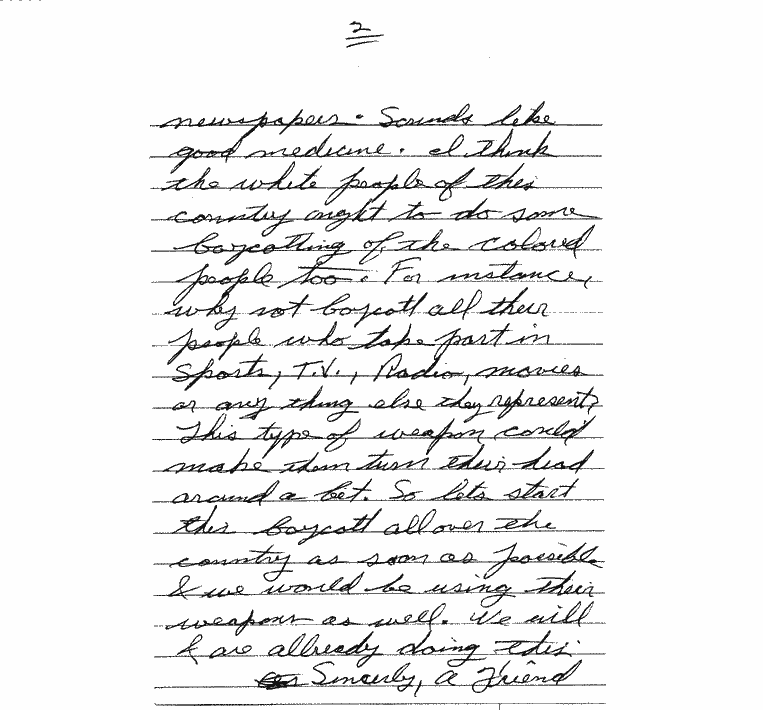 2
newspapers. Sounds like
good medicine. I think
the white people of this
country ought to do some
boycotting of the colored
people too. For instance,
why not boycott all their
people who take part in
Sports, T.V., Radio, movies
or any thing else they represent?
This type of weapon could
make them turn their head
around a bit. So lets start
this boycott all over the
country as soon as possible
& we would be using their
weapons as well. We will
& are allready doing this.
Sincerly, A Friend